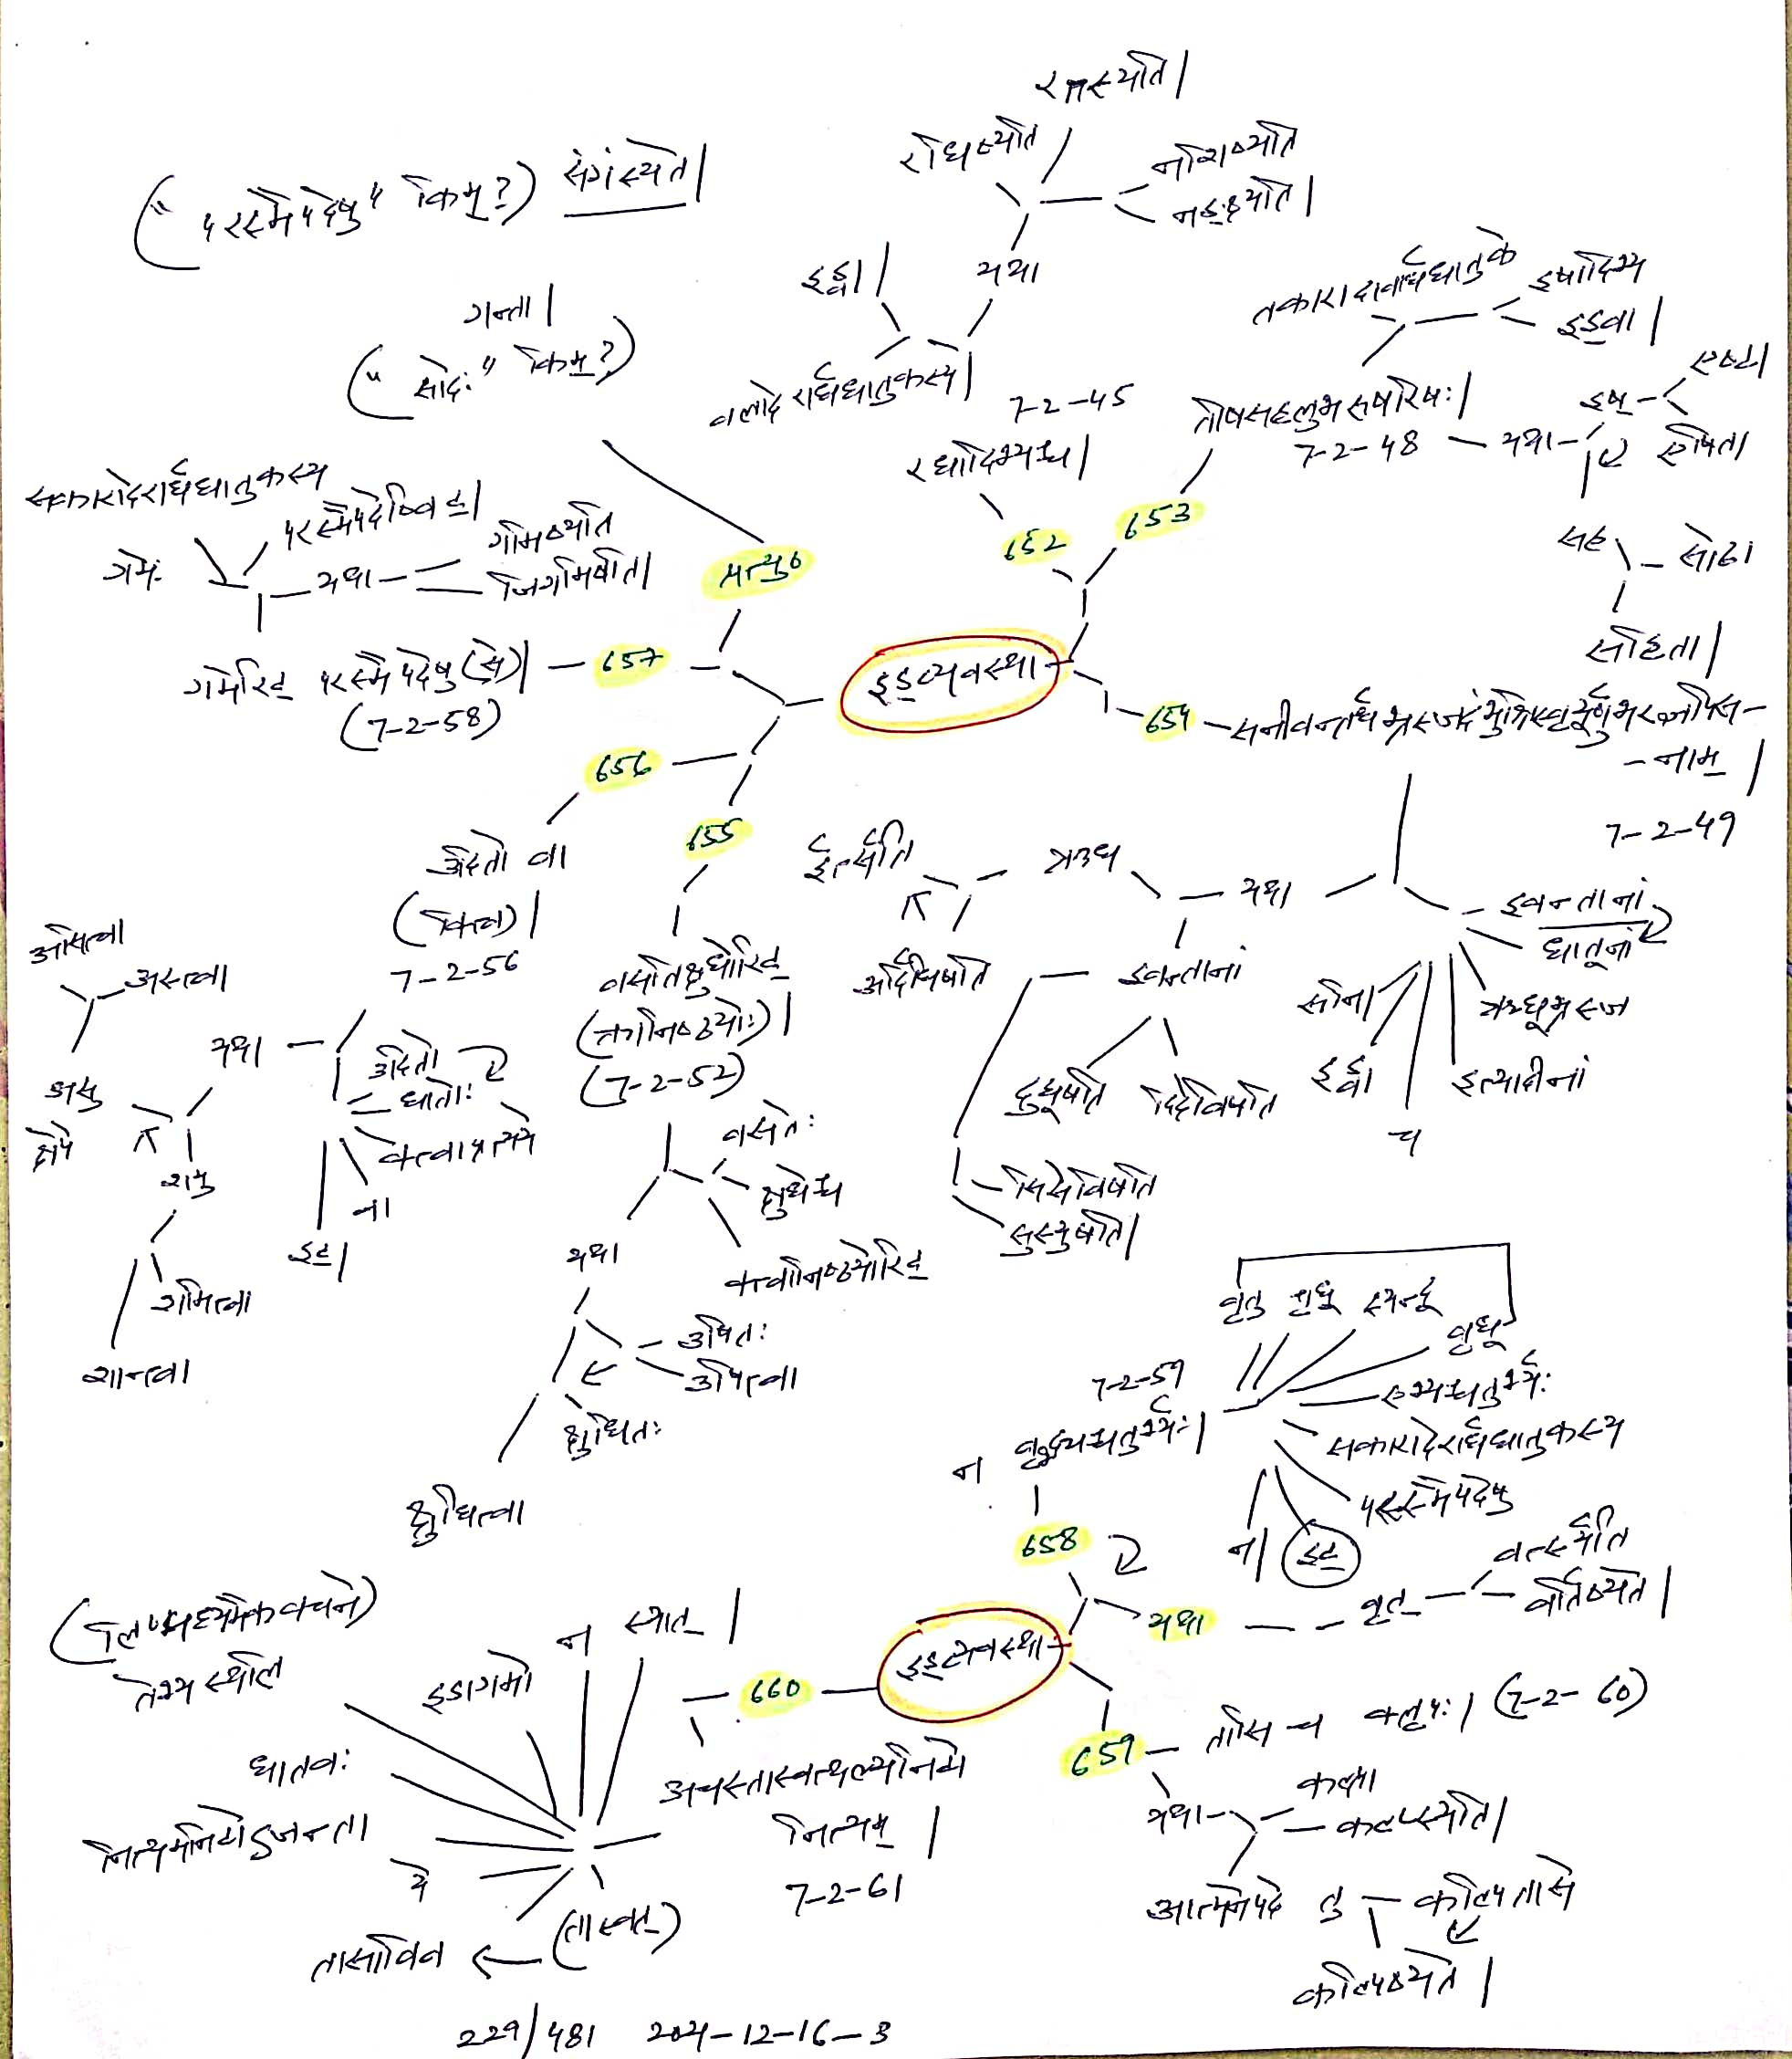 रत्स्यति|
रधिष्यति
नशिष्यति
नङ्क्ष्यति|
("परस्मैपदेषु" किम्?) संगंस्यते|
यथा
इड्वा|
वलादेरार्धधातुकस्य|
7-2-45
रधादिभ्यश्च|
652
तकारादावार्धधातुके
इषादिभ्य
इड्वा|
तीषसहलुभरुषरिषः|
7-2-48
यथा
इष
एष्टा
एषिता
653
सह
सोढा
सहिता|
गन्ता|
("सादेः" किम्?)
प्रत्यु०
सकारादेरार्धधातुकस्य
परस्मैपदेष्विट्|
गमेः
यथा
गमिष्यति
जिगमिषति|
गमेरिट् परस्मैपदेषु (से)|
(7-2-58)
657
इड्व्यवस्था
654
सनीवन्तर्धभ्रस्जदंभुश्रिस्वृयूर्णुभरज्ञपिस-
-नाम्|
7-2-49
656
655
उदितो वा
(क्त्वि)|
7-2-56
ईर्त्सति
ऋध
यथा
इवन्तानां
धातूनां
अर्दिधिषति
इवन्तानां
सनि
ऋधूभ्रस्ज
इड्वा
इत्यादीनां
च
दुद्यूषति
दिदेविषति
सिसेविषति
सुस्यूषति|
असित्वा
अस्त्वा
यथा
उदितो
धातोः
असु
क्षेपे
शमु
क्त्वाप्रत्यये
वा
इट्|
शमित्वा
शान्त्वा
वसतिक्षुधोरिट्
(क्त्वानिष्ठयोः)|
(7-2-52)
वसतेः
क्षुधेश्च
यथा
क्त्वानिष्ठयोरिट्
उषितः
उषित्वा
क्षुधितः
क्षुधित्वा
वृतु शृधु स्यन्दू
वृधु
7-2-59
न वृद्भ्यश्चतुर्भ्यः|
एभ्यश्चतुर्भ्यः
सकारादेरार्धधातुकस्य
परस्मैपदेषु
न|
इट्
658
यथा
वृत्
वर्त्स्यति
वर्तिष्यते|
इड्व्यवस्था
659
तासि च क्लृपः| (7-2-60)
यथा
कल्प्ता
कल्प्स्यति|
आत्मनेपदे तु
कल्पितासे
कल्पिष्यते|
660
अचस्तास्वत्थल्यनिटो
नित्यम्|
7-2-61
तेभ्य स्थलि
इडागमो
न
स्यात्|
धातवः
नित्यमनिटोऽजन्ता|
ये
तासाविव
(तास्वत्)
229/481 2021-12-16-3